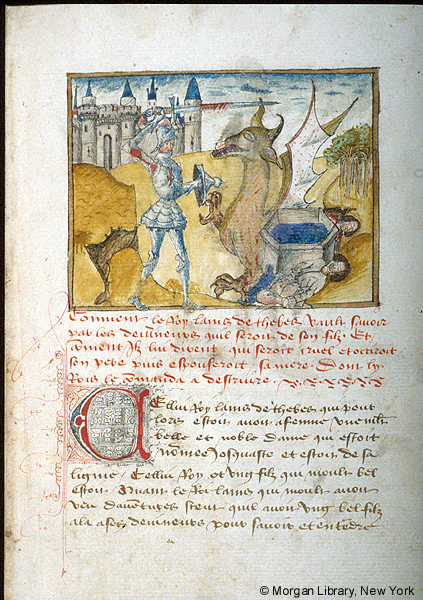 Comment le Roy laius de thebes vault savoir
par les devineurs quil seroit de son filz. Et
coment ilz lui dirent qui seroit cruel et occiroit
son pere puis espouseroit sa mere. Dont ly
Rois le comanda a destruire.
Cellui Roy laius de thebes qui pour
lors estoit avoit a femme une
belle et noble dame qui estoit
nomee Jocquaste et estoit de sa
ligne. Cellui Roy et ung filz qui moult bel
estoit. Quant le Roi laius qui moult avoit
veu daventures sceut quil avoit ung bel filz
ala a ses devineurs pour savoir et entendre
© Morgan Library, New York